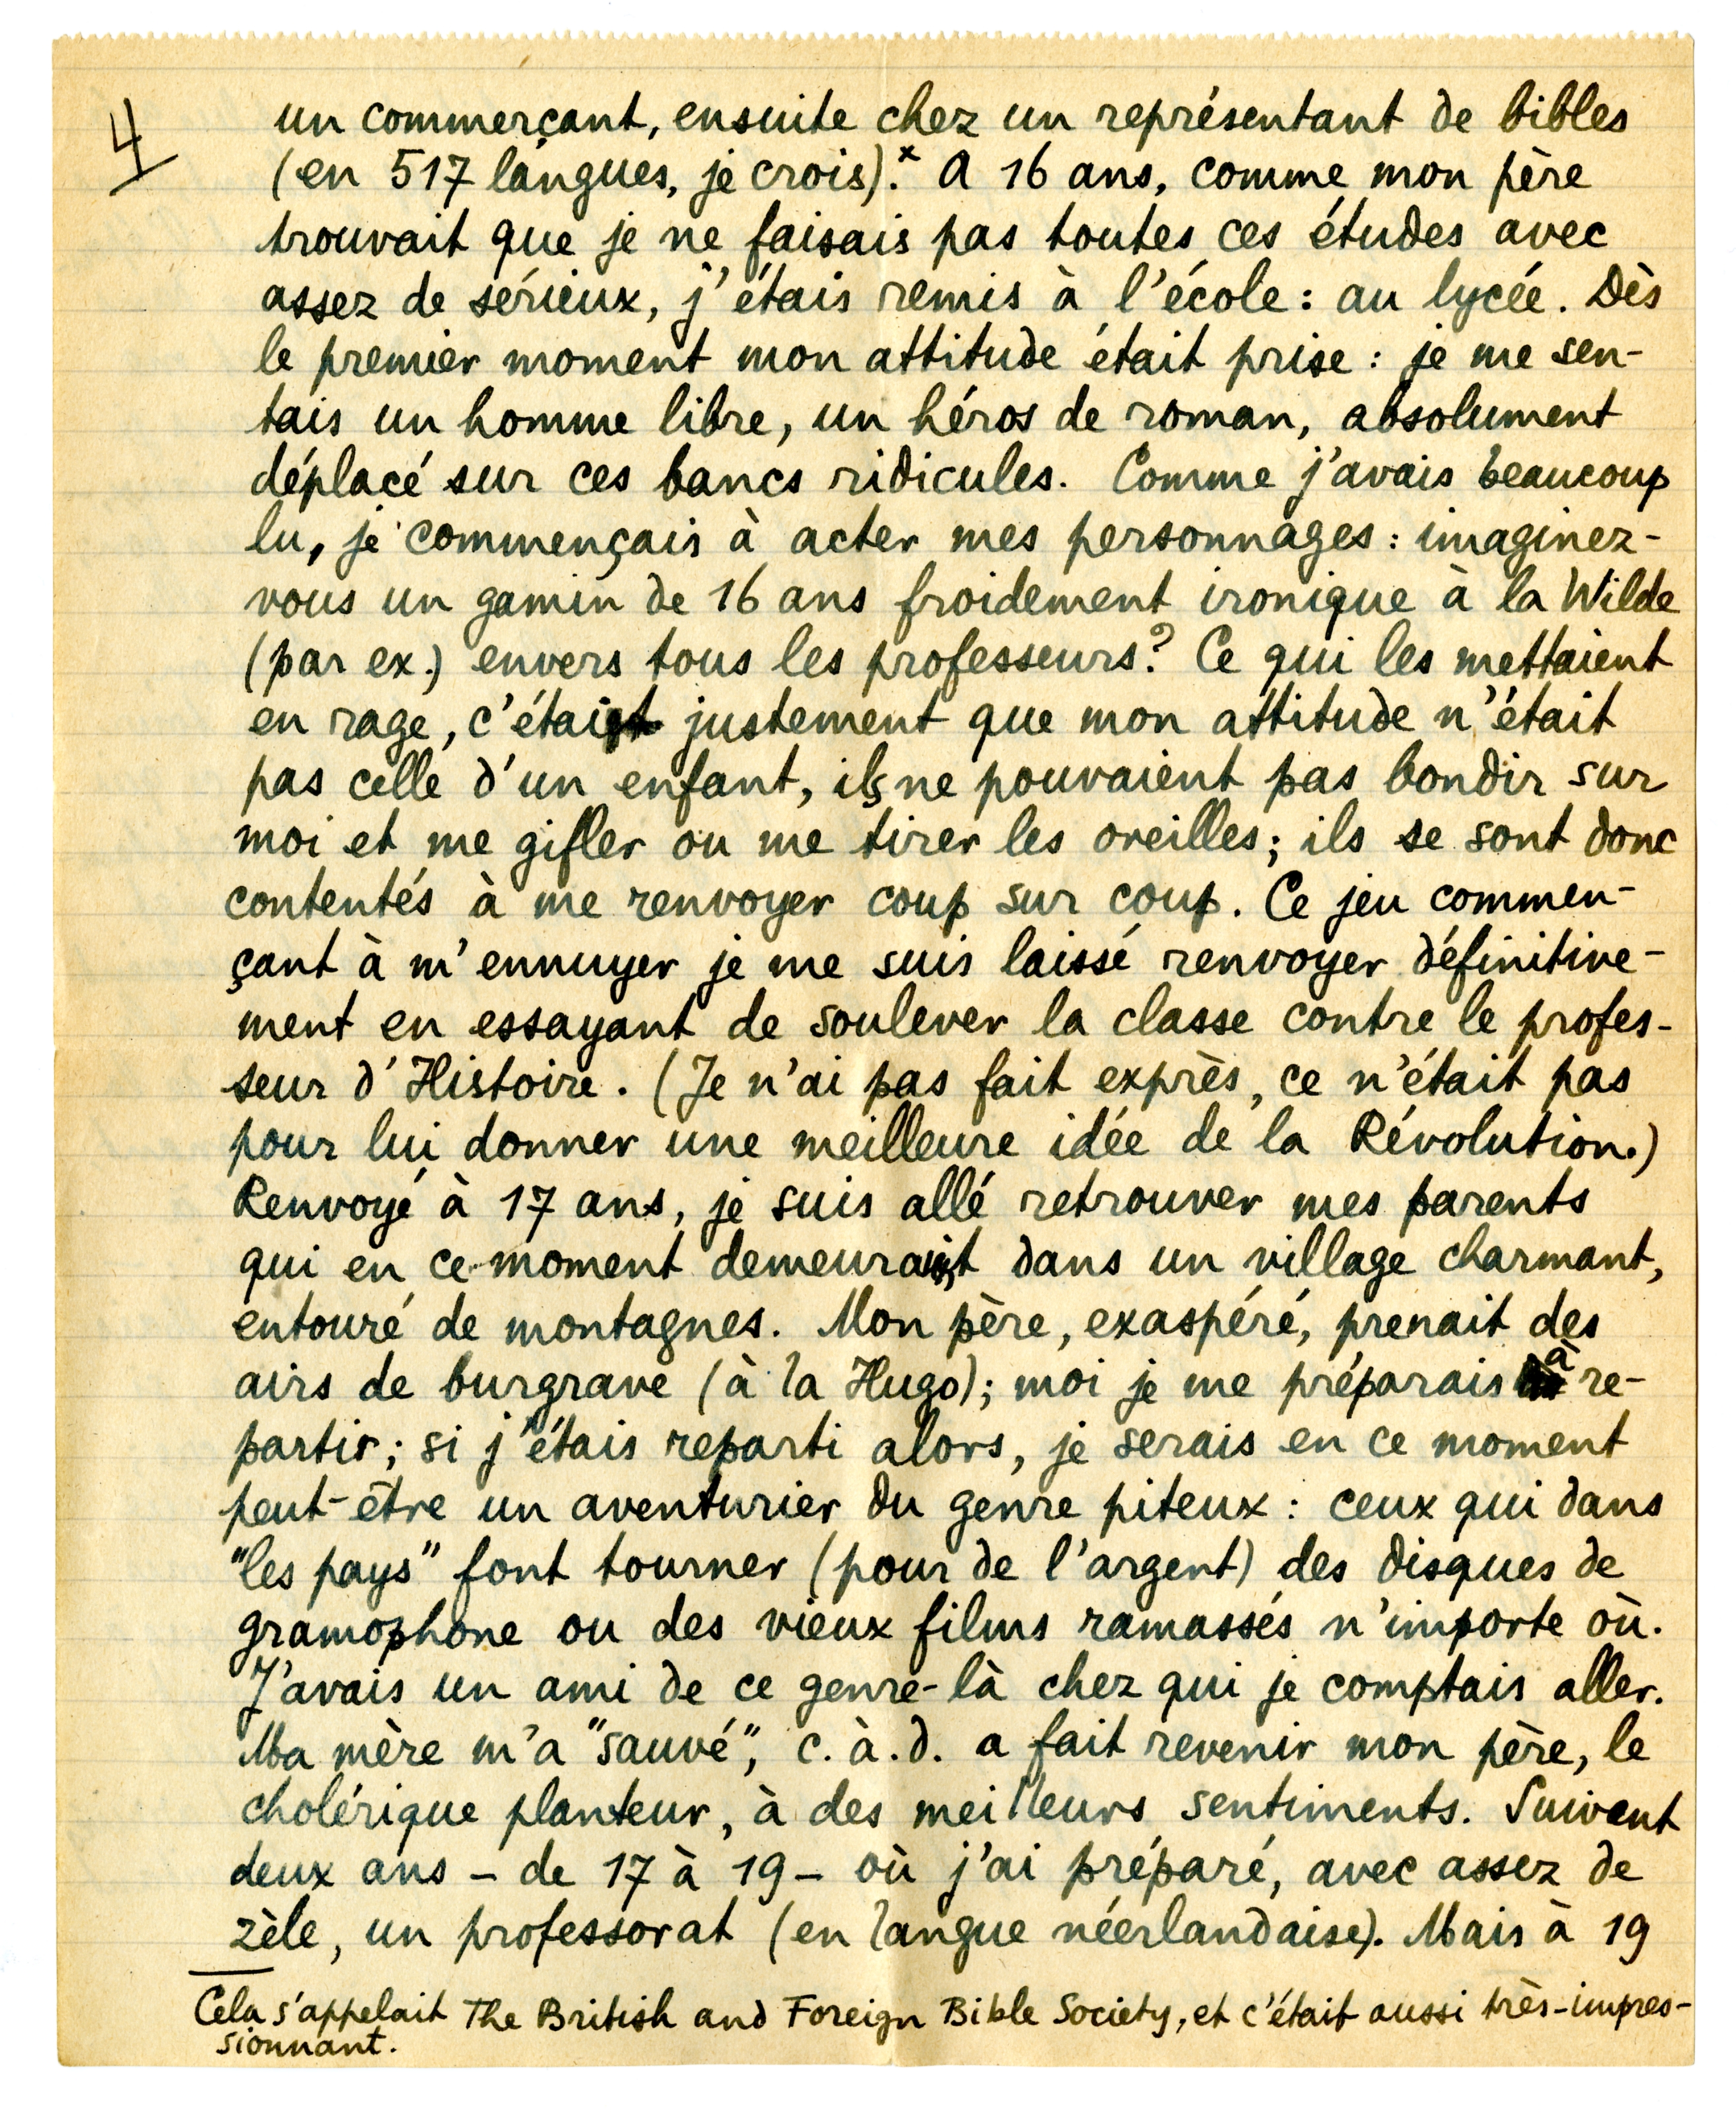 4
un commerçant, ensuite chez un représentant de bibles
(en 517 langues, je crois).x A 16 ans, comme mon père
trouvait que je ne faisais pas toutes ces études avec
assez de sérieux, j'étais remis à l'école : au lycée. Dès
le premier moment mon attitude était prise : je me sen-
tais un homme libre, un héros de roman, absolument
déplacé sur ces bancs ridicules. Comme j'avais beaucoup
lu, je commençais à acter mes personnages : imaginez-
vous un gamin de 16 ans froidement ironique à la Wilde
(par ex.) envers tous les professeurs? Ce qui les mettaient
en rage, c'était justement que mon attitude n'était
pas celle d'un enfant, ils ne pouvaient pas bondir sur
moi et me gifler ou me tirer les oreilles; ils se sont donc
contentés à me renvoyer coup sur coup. Ce jeu commen-
çant à m'ennuyer je me suis laissé renvoyer définitive-
ment en essayant de soulever la classe contre le profes-
seur d'Histoire. (Je n'ai pas fait exprès, ce n'était pas
pour lui donner une meilleure idée de la Révolution.)
Renvoyé à 17 ans, je suis allé retrouver mes parents
qui en ce moment demeuraient dans un village charmant,
entouré de montagnes. Mon père, exaspéré, prenait des
airs de burgrave (à la Hugo); moi je me préparais à re-
partir; si j'étais reparti alors, je serais en ce moment
peut-être un aventurier du genre piteux : ceux qui dans
"les pays" font tourner (pour de l'argent) des disques de
gramophone ou des vieux films ramassés n'importe où.
J'avais un ami de ce genre-là chez qui je comptais aller.
Ma mère m'a "sauvé", c.à.d. a fait revenir mon père, le
cholérique planteur, à des meilleurs sentiments. Suivent
deux ans – de 17 à 19 – où j'ai préparé, avec assez de
zèle, un professorat (en langue néerlandaise). Mais à 19
Cela s'appelait The British and Foreign Bible Society, et c'était aussi très-impres-
sionnant.